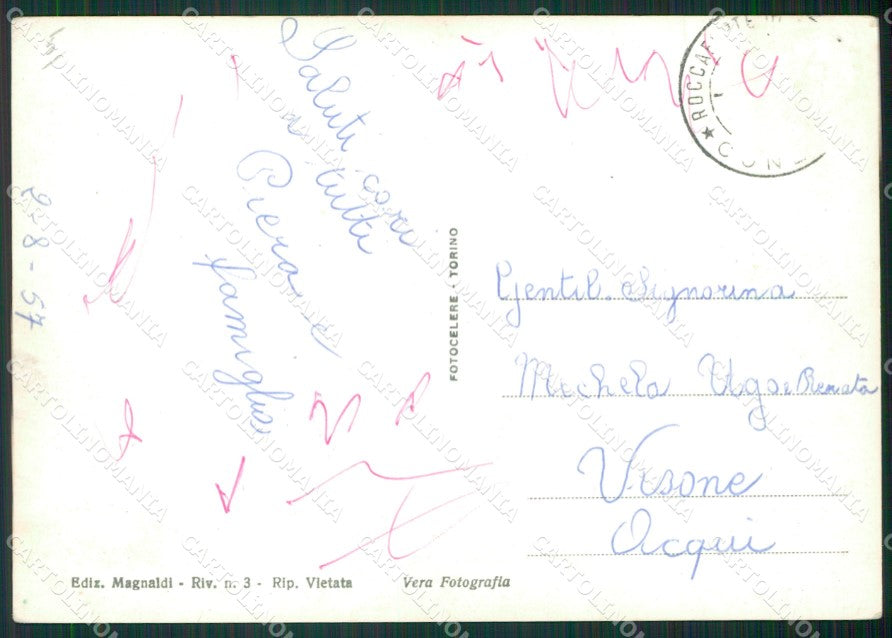 Saluti cari
a tutti
Piera e
famiglia
2-8-57
ROCCAF
CUNEO
FOTOCELERE - TORINO
Gentil. Signorina
Michela Ugo e Renata
Visone
Acqui
Ediz. Magnaldi - Riv. n. 3 - Rip. Vietata
Vera Fotografia
CARTOLINOMANIA